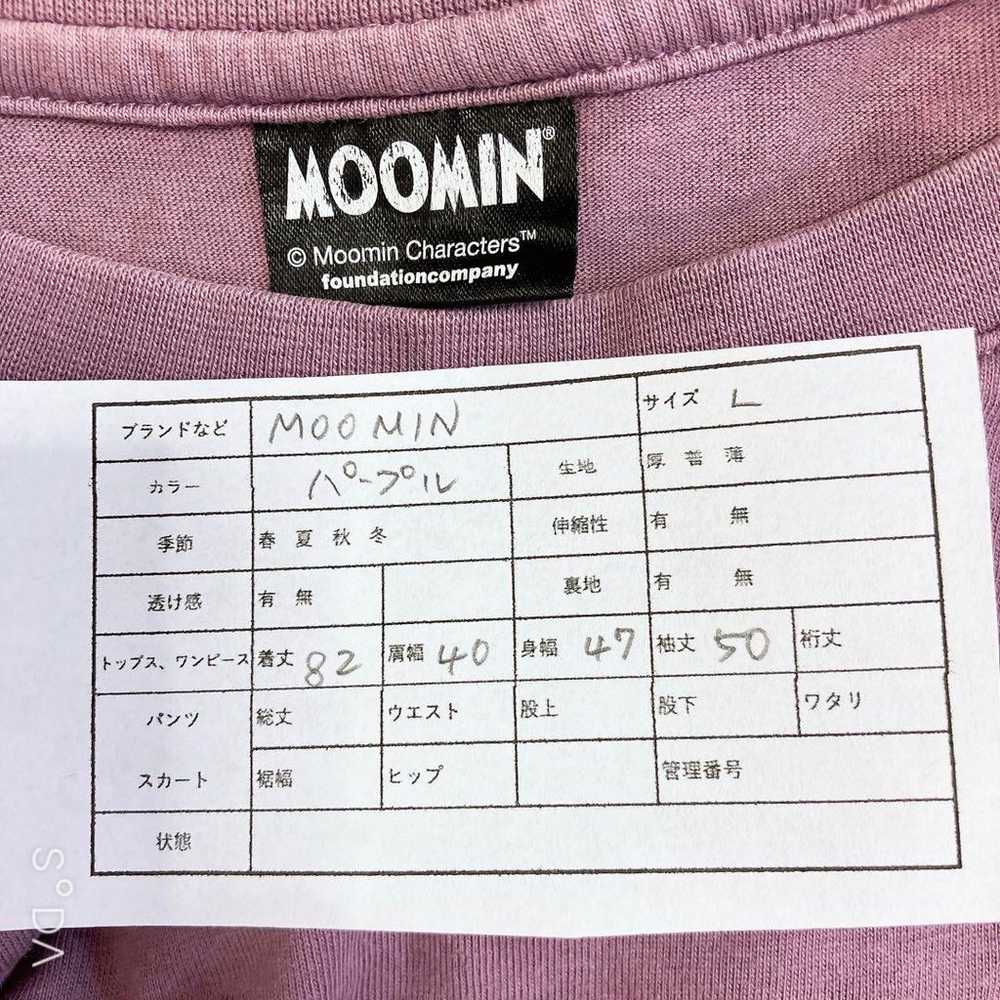 MOOMIN®
© Moomin Characters™
foundationcompany
ブランドなど MOOMIN サイズ L
カラー パープル 生地 厚 普 薄
季節 春 夏 秋 冬 伸縮性 有 無
透け感 有 無 裏地 有 無
トップス、ワンピース 着丈 82 肩幅 40 身幅 47 袖丈 50 裄丈
パンツ 総丈 ウエスト 股上 股下 ワタリ
スカート 裾幅 ヒップ 管理番号
状態
SODA